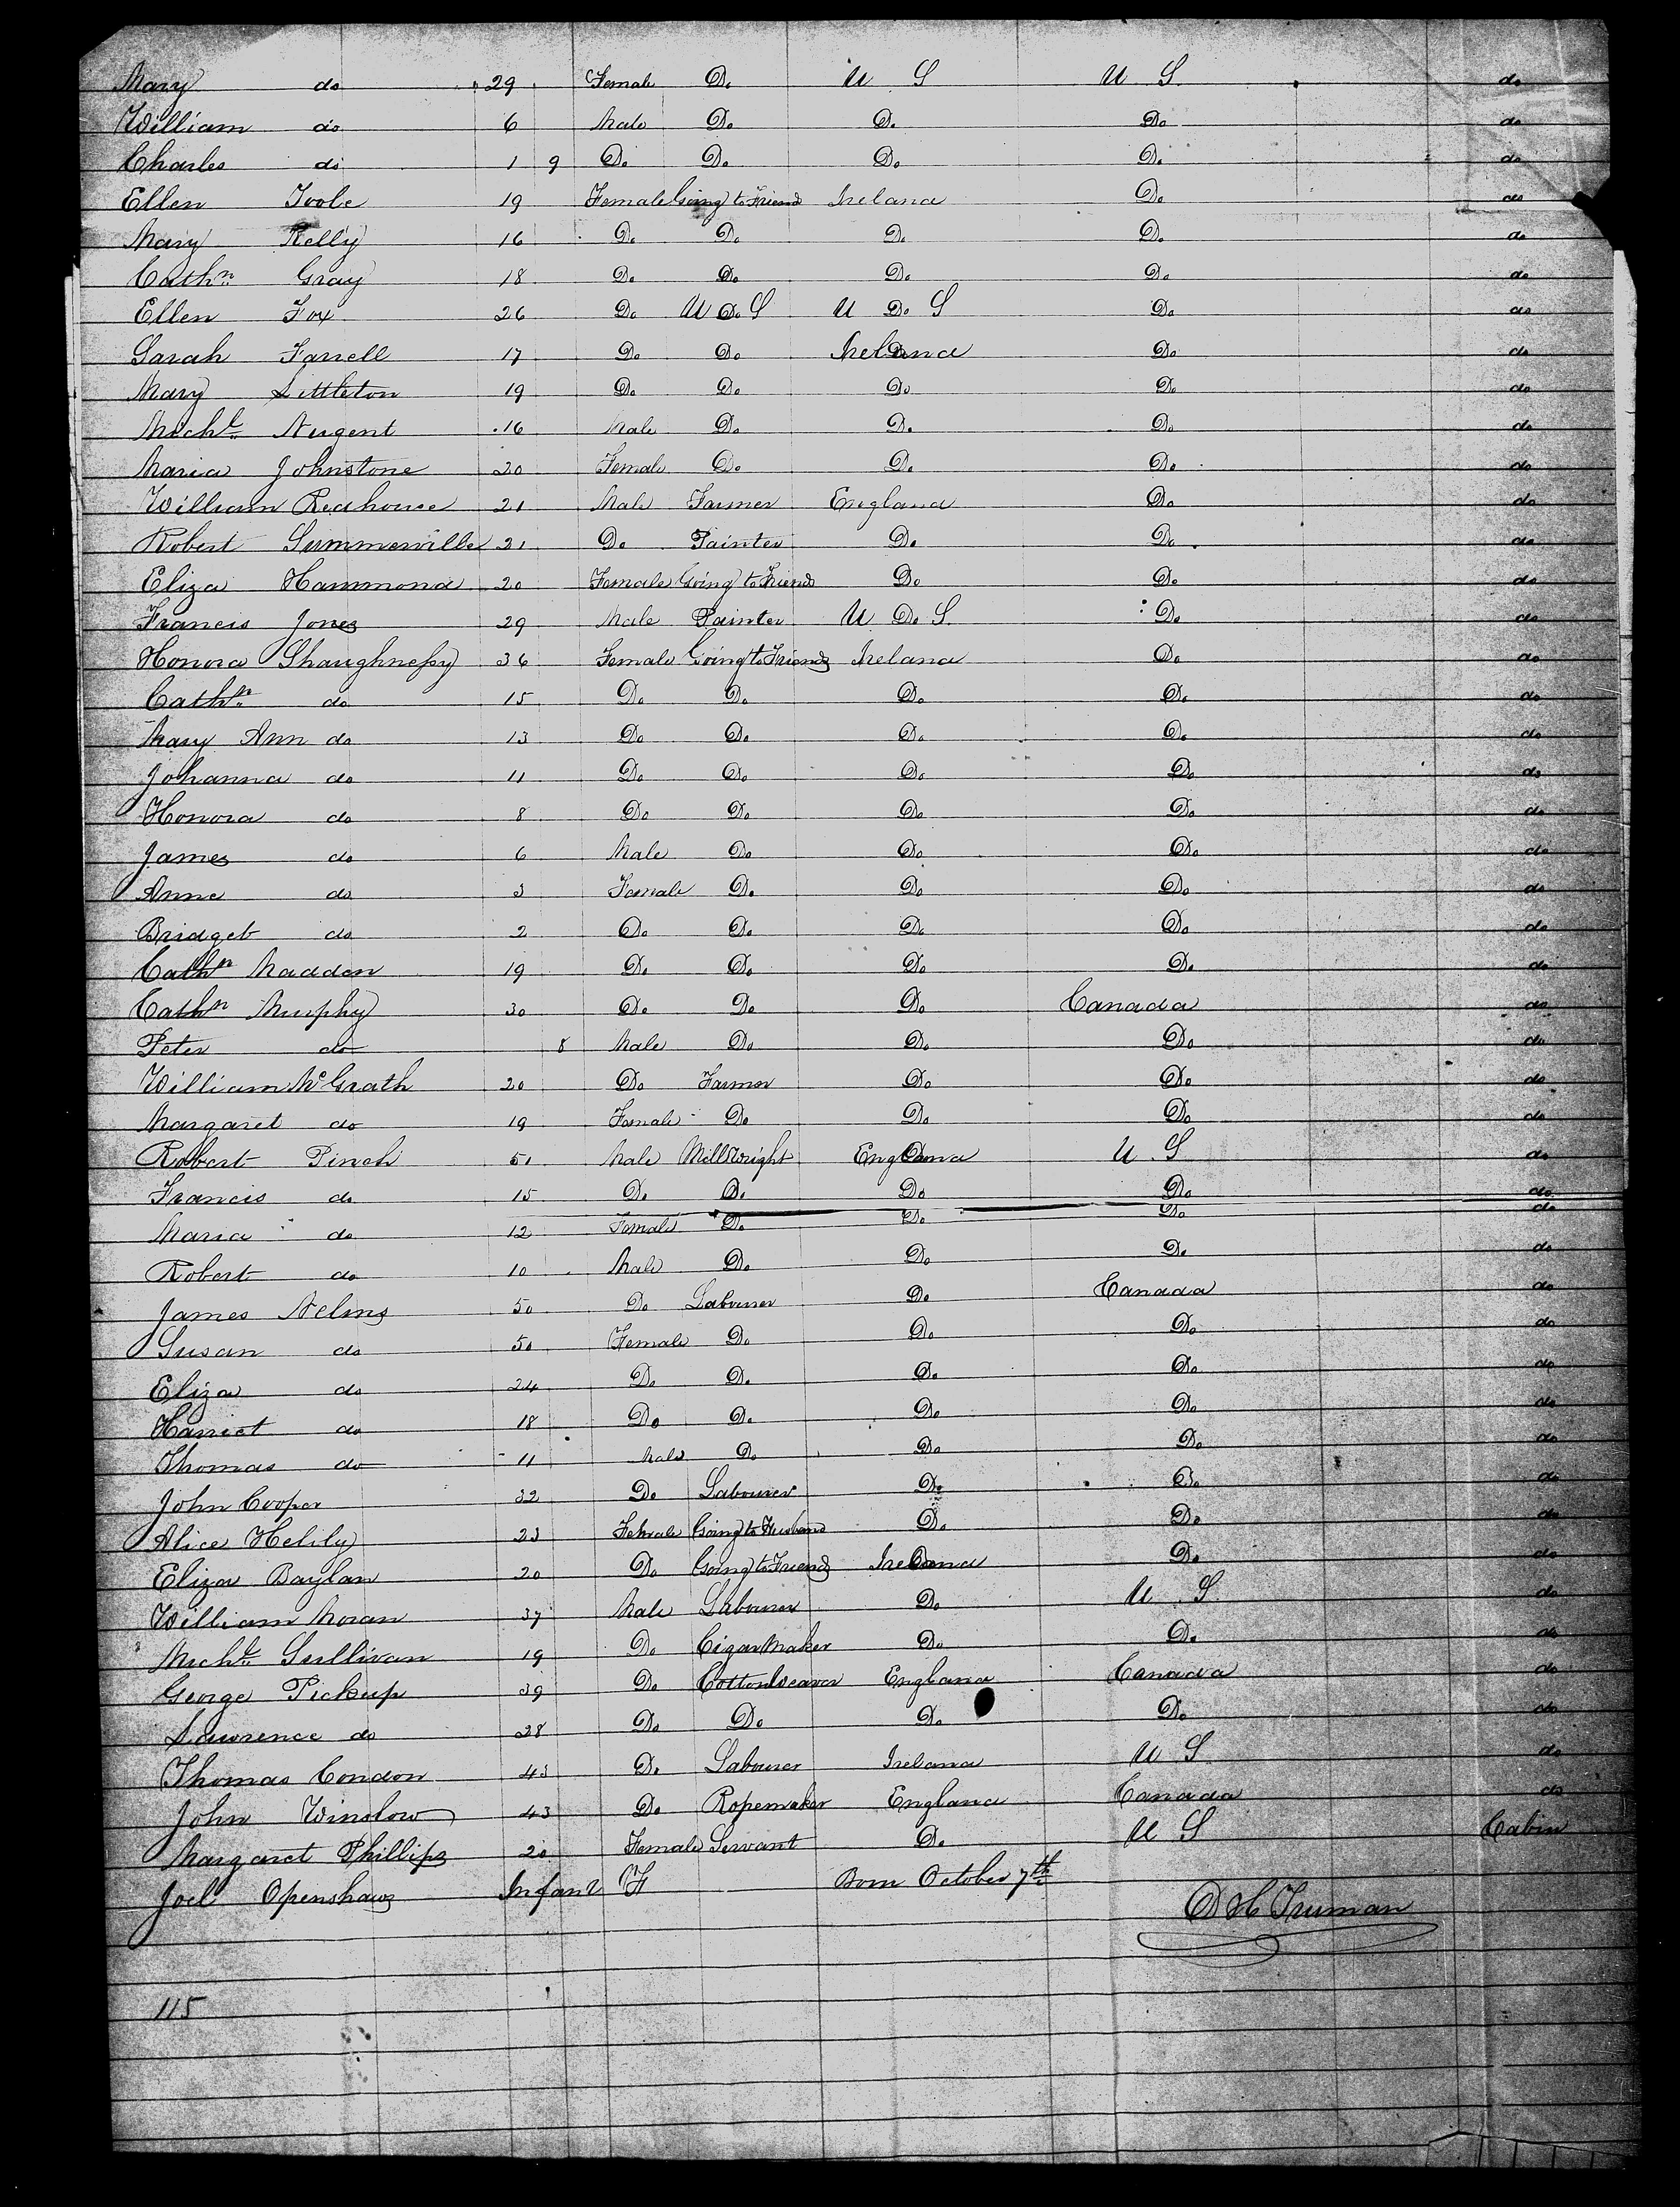 Mary do 29 Female Do U S U S do
William do 6 Male Do Do Do do
Charles do 1 9 Do Do Do Do do
Ellen Toole 19 Female Going to Friend Ireland Do do
Mary Kelly 16 Do Do Do Do do
Cathn Gray 18 Do Do Do Do do
Ellen Fox 26 Do U Do S U Do S Do do
Sarah Farrell 17 Do Do Ireland Do do
Mary Littleton 19 Do Do Do Do do
Michl Nugent 16 Male Do Do Do do
Maria Johnstone 20 Female Do Do Do do
William Redhouse 21 Male Farmer England Do do
Robert Summerville 21 Do Painter Do Do do
Eliza Hammond 20 Female Going to Friend Do Do do
Francis Jones 29 Male Painter U Do S Do do
Honora Shaughnessy 36 Female Going to Friends Ireland Do do
Cathn do 15 Do Do Do Do do
Mary Ann do 13 Do Do Do Do do
Johanna do 11 Do Do Do Do do
Honora do 8 Do Do Do Do do
James do 6 Male Do Do Do do
Anne do 3 Female Do Do Do do
Bridget do 2 Do Do Do Do do
Cathn Madden 19 Do Do Do Do do
Cathn Murphy 30 Do Do Do Canada do
Peter do 8 Male Do Do Do do
William McGrath 20 Do Farmer Do Do do
Margaret do 19 Female Do Do Do do
Robert Pinch 51 Male Millwright England U S do
Francis do 15 Do Do Do Do do
Maria do 12 Female Do Do Do do
Robert do 10 Male Do Do Do do
James Nelms 50 Do Labourer Do Canada do
Susan do 50 Female Do Do Do do
Eliza do 24 Do Do Do Do do
Harriet do 18 Do Do Do Do do
Thomas do 11 Male Do Do Do do
John Cooper 32 Do Labourer Do Do do
Alice 23 Female Going to Husband Do Do do
Eliza Baylan 20 Do Going to Friends Ireland Do do
William Moran 37 Male Labourer Do U S do
Michl Sullivan 19 Do Cigar Maker Do Do do
George Pickup 39 Do Cotton Weaver England Canada do
Lawrence do 28 Do Do Do Do do
Thomas Condon 43 Do Labourer Ireland U S do
John Winslow 43 Do Ropemaker England Canada do
Margaret Phillips 20 Female Servant Do U S Cabin
Joel Openshaw Infant F Born October 7th
D H Truman
115